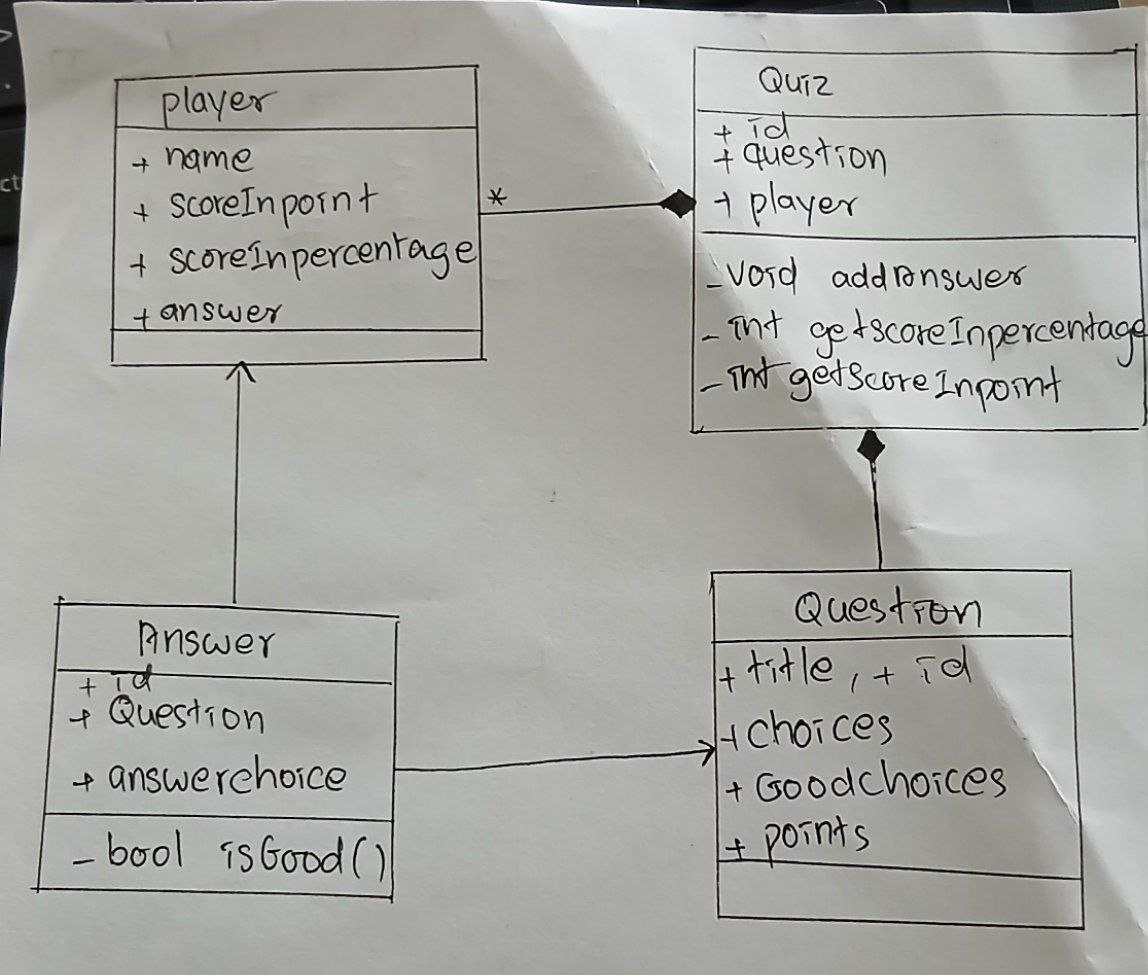 player
+ name
+ scoreInpoint
+ scoreInpercentage
+ answer
*
Quiz
+ id
+ question
+ player
- void addAnswer
- int getscoreInpercentage
- int getScoreInpoint
Answer
+ id
+ Question
+ answerchoice
- bool isGood()
Question
+ title, + id
+ choices
+ Goodchoices
+ points